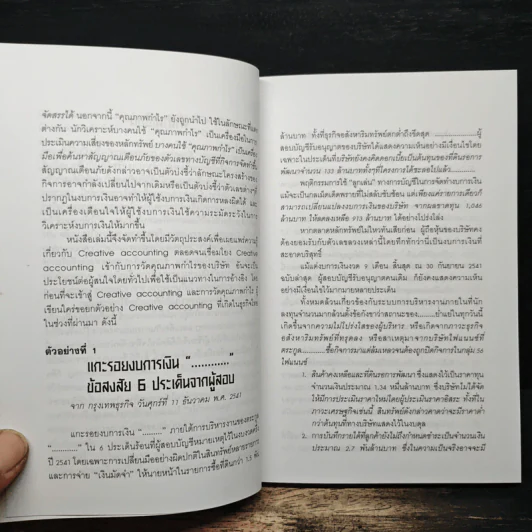 จัดสรรได้ นอกจากนี้ "คุณภาพกำไร" ยังถูกนำไป ใช้ในลักษณะที่แตก
ต่างกัน นักวิเคราะห์บางคนใช้ "คุณภาพกำไร" เป็นเครื่องมือในการ
ประเมินความเสี่ยงของหลักทรัพย์ บางคนใช้ "คุณภาพกำไร" เป็นเครื่อง
มือเพื่อค้นหาสัญญาณเตือนภัยของตัวเลขทางบัญชีที่กิจการจัดทำขึ้น
สัญญาณเตือนภัยดังกล่าวอาจเป็นตัวบ่งชี้ว่าลักษณะโครงสร้างของ
กิจการอาจกำลังเปลี่ยนไปจากเดิมหรือเป็นตัวบ่งชี้ว่าตัวเลขต่างๆ ที่
ปรากฏในงบการเงินอาจทำให้ผู้ใช้งบการเงินเกิดการหลงผิดได้ และ
เป็นเครื่องเตือนใจให้ผู้ใช้งบการเงินใช้ความระมัดระวังในการ
วิเคราะห์งบการเงินให้มากขึ้น
หนังสือเล่มนี้จึงจัดทำขึ้นโดยมีวัตถุประสงค์เพื่อเผยแพร่ความรู้
เกี่ยวกับ Creative accounting ตลอดจนเชื่อมโยง Creative
accounting เข้ากับการวัดคุณภาพกำไรของบริษัท อันจะเป็น
ประโยชน์ต่อผู้สนใจโดยทั่วไปเพื่อใช้เป็นแนวทางในการอ้างอิง โดย
ก่อนที่จะเข้าสู่ Creative accounting และการวัดคุณภาพกำไร ผู้
เขียนใคร่ขอยกตัวอย่าง Creative accounting ที่เกิดในธุรกิจไทย
ในช่วงที่ผ่านมา ดังนี้
ตัวอย่างที่ 1
แกะรอยงบการเงิน "..........."
ข้อสงสัย 6 ประเด็นจากผู้สอบ
จาก กรุงเทพธุรกิจ วันศุกร์ที่ 11 ธันวาคม พ.ศ. 2541
แกะรอยงบการเงิน ".........." ภายใต้การบริหารงานของตระกูล
".........." ใน 6 ประเด็นร้อนที่ผู้สอบบัญชีหมายเหตุไว้ในงบรวดครึ่ง
ปี 2541 โดยเฉพาะการเปลี่ยนมืออย่างผิดปกติในสินทรัพย์หลายรายการ
และการจ่าย "เงินมัดจำ" ให้นายหน้าในรายการซื้อที่ดินกว่า 1.5 พัน
ล้านบาท ทั้งที่ธุรกิจอสังหาริมทรัพย์ตกต่ำถึงขีดสุด ..........ผู้
สอบบัญชีรับอนุญาตของบริษัทได้แสดงความเห็นอย่างมีเงื่อนไขโดย
เฉพาะในประเด็นที่บริษัทยังคงคิดดอกเบี้ยเป็นต้นทุนของที่ดินรอการ
พัฒนาจำนวน 133 ล้านบาททั้งๆที่โครงการได้ชะลอไปแล้ว
พฤติกรรมการใช้ "ลูกเล่น" ทางการบัญชีในการจัดทำงบการเงิน
แม้จะเป็นกลเม็ดเด็ดพรายที่ไม่สลับซับซ้อน แต่เพียงแค่รายการเดียวก็
สามารถเปลี่ยนแปลงงบการเงินของบริษัท จากผลขาดทุน 1,046
ล้านบาท ให้ลดลงเหลือ 913 ล้านบาท ได้อย่างโปร่งใส
หากตลาดหลักทรัพย์ไม่ไหวทันเสียก่อน ผู้ถือหุ้นของบริษัทคง
ต้องยอมรับกับตัวเลขลวงเหล่านี้โดยที่ทึกทักว่านี่เป็นงบการเงินที่
สะอาดบริสุทธิ์
แม้แต่งบการเงินงวด 9 เดือน สิ้นสุด ณ 30 กันยายน 2541
ฉบับล่าสุด ผู้สอบบัญชีรับอนุญาตคนเดิม ก็ยังคงแสดงความเห็น
อย่างมีเงื่อนไขไว้มากมายหลายประเด็น
ทั้งหมดล้วนเกี่ยวข้องกับระบบการบริหารงานภายในที่นัก
ลงทุนจำนวนมากล้วนตั้งข้อกังขาว่าสถานะของ..........ย่ำแย่ในทุกวันนี้
เกิดขึ้นจากความไม่โปร่งใสของผู้บริหาร หรือเกิดจากภาวะธุรกิจ
อสังหาริมทรัพย์ที่ทรุดลง หรือสาเหตุมาจากบริษัทไฟแนนซ์ที่
ตระกูล..........ซื้อกิจการมาแต่ล้มเหลวจนต้องถูกปิดกิจการในกลุ่ม 56
ไฟแนนซ์
1. สินค้าคงเหลือและที่ดินรอการพัฒนา ซึ่งแสดงไว้เป็นราคาทุน
จำนวนเงินประมาณ 1.34 หมื่นล้านบาท ซึ่งบริษัทไม่ได้จัด
ให้มีการประเมินราคาใหม่โดยผู้ประเมินราคาอิสระ ทั้งที่ใน
ภาวะเศรษฐกิจเช่นนี้ สินทรัพย์ดังกล่าวคาดว่าจะมีราคาต่ำ
กว่าต้นทุนที่ทางบริษัทแสดงไว้ในงบดุล
2. การบันทึกรายได้ที่ลูกค้ายังไม่ถึงกำหนดชำระเป็นจำนวนเงิน
ประมาณ 2.7 พันล้านบาท ซึ่งในความเป็นจริงอาจจะมี